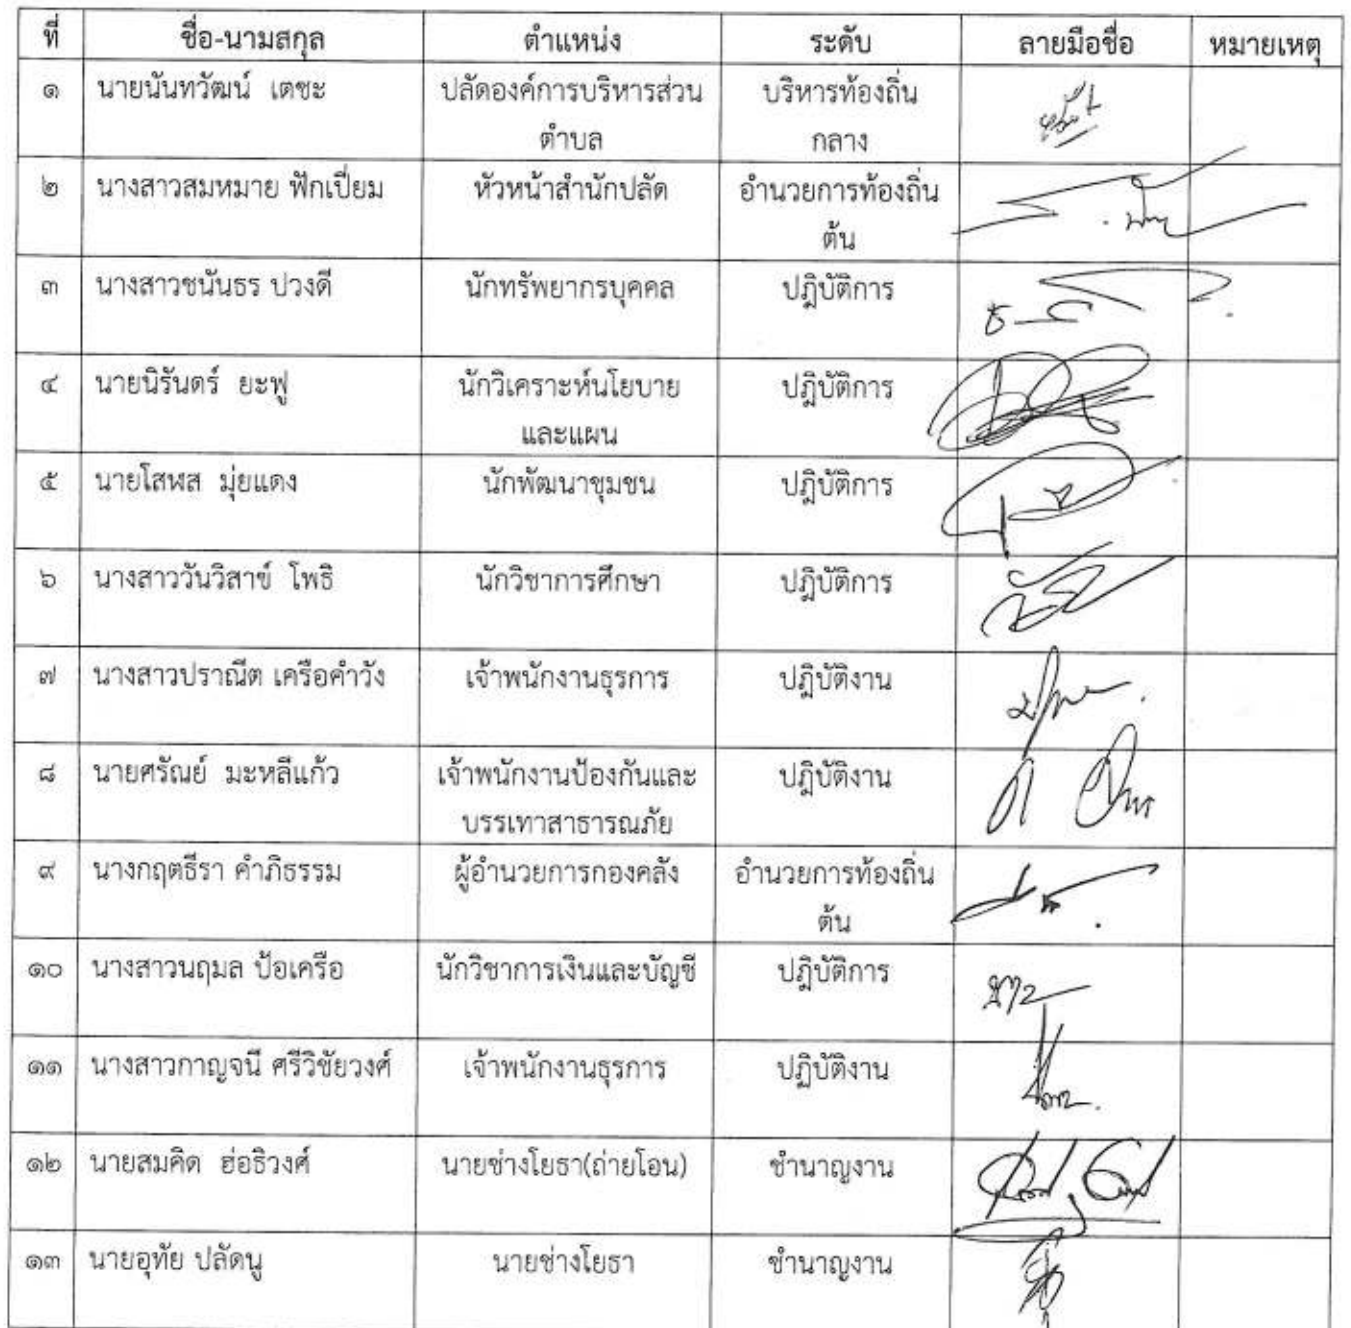 ที่ ชื่อ-นามสกุล ตำแหน่ง ระดับ ลายมือชื่อ หมายเหตุ
๑ นายนันทวัฒน์ เตชะ ปลัดองค์การบริหารส่วน บริหารท้องถิ่น
ตำบล กลาง
๒ นางสาวสมหมาย ฟักเปี่ยม หัวหน้าสำนักปลัด อำนวยการท้องถิ่น
ต้น
๓ นางสาวชนันธร ปวงดี นักทรัพยากรบุคคล ปฏิบัติการ
๔ นายนิรันดร์ ยะฟู นักวิเคราะห์นโยบาย ปฏิบัติการ
และแผน
๕ นายโสฬส มุ่ยแดง นักพัฒนาชุมชน ปฏิบัติการ
๖ นางสาววันวิสาข์ โพธิ นักวิชาการศึกษา ปฏิบัติการ
๗ นางสาวปราณีต เครือคำวัง เจ้าพนักงานธุรการ ปฏิบัติงาน
๘ นายศรัณย์ มะหลีแก้ว เจ้าพนักงานป้องกันและ ปฏิบัติงาน
บรรเทาสาธารณภัย
๙ นางกฤตธีรา คำภิธรรม ผู้อำนวยการกองคลัง อำนวยการท้องถิ่น
ต้น
๑๐ นางสาวนฤมล ป้อเครือ นักวิชาการเงินและบัญชี ปฏิบัติการ
๑๑ นางสาวกาญจนี ศรีวิชัยวงศ์ เจ้าพนักงานธุรการ ปฏิบัติงาน
๑๒ นายสมคิด ฮ่อธิวงศ์ นายช่างโยธา(ถ่ายโอน) ชำนาญงาน
๑๓ นายอุทัย ปลัดนู นายช่างโยธา ชำนาญงาน